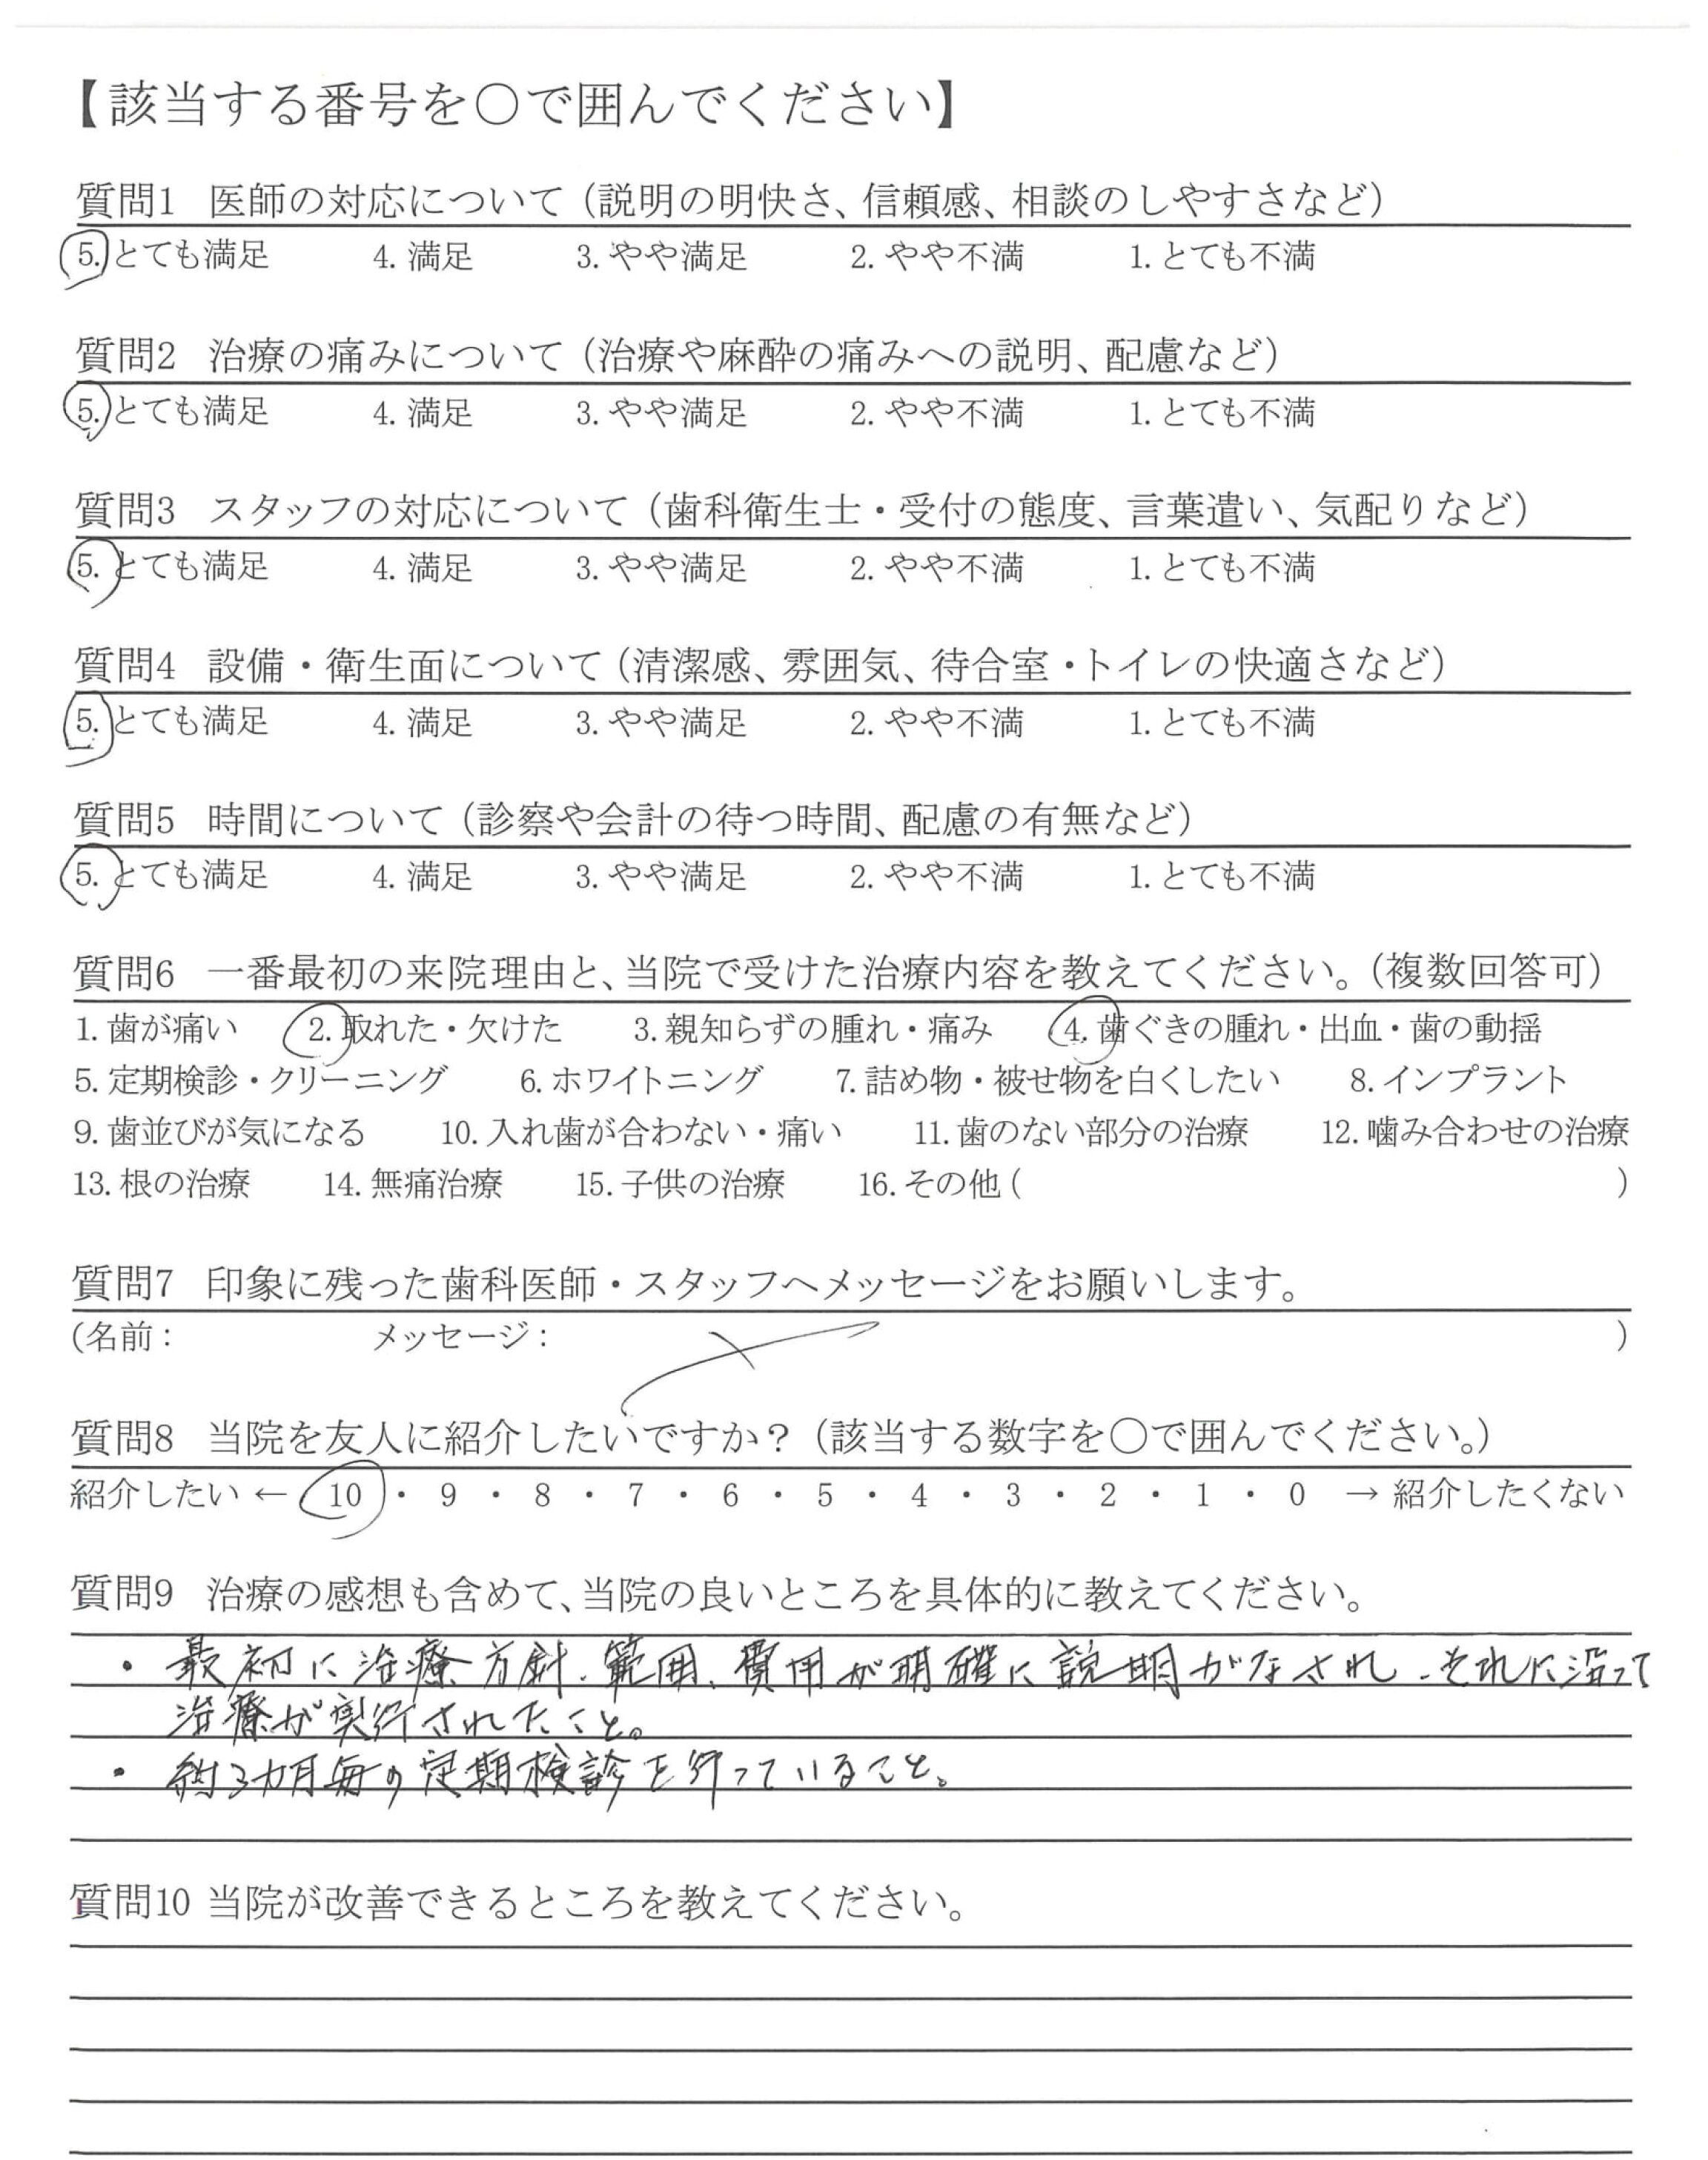 【該当する番号を〇で囲んでください】
質問1 医師の対応について（説明の明快さ、信頼感、相談のしやすさなど）
5. とても満足 4. 満足 3. やや満足 2. やや不満 1. とても不満
質問2 治療の痛みについて（治療や麻酔の痛みへの説明、配慮など）
5. とても満足 4. 満足 3. やや満足 2. やや不満 1. とても不満
質問3 スタッフの対応について（歯科衛生士・受付の態度、言葉遣い、気配りなど）
5. とても満足 4. 満足 3. やや満足 2. やや不満 1. とても不満
質問4 設備・衛生面について（清潔感、雰囲気、待合室・トイレの快適さなど）
5. とても満足 4. 満足 3. やや満足 2. やや不満 1. とても不満
質問5 時間について（診察や会計の待つ時間、配慮の有無など）
5. とても満足 4. 満足 3. やや満足 2. やや不満 1. とても不満
質問6 一番最初の来院理由と、当院で受けた治療内容を教えてください。（複数回答可）
1. 歯が痛い 2. 取れた・欠けた 3. 親知らずの腫れ・痛み 4. 歯ぐきの腫れ・出血・歯の動揺
5. 定期検診・クリーニング 6. ホワイトニング 7. 詰め物・被せ物を白くしたい 8. インプラント
9. 歯並びが気になる 10. 入れ歯が合わない・痛い 11. 歯のない部分の治療 12. 噛み合わせの治療
13. 根の治療 14. 無痛治療 15. 子供の治療 16. その他（ ）
質問7 印象に残った歯科医師・スタッフへメッセージをお願いします。
（名前： メッセージ： ）
質問8 当院を友人に紹介したいですか？（該当する数字を〇で囲んでください。）
紹介したい ← 10 ・ 9 ・ 8 ・ 7 ・ 6 ・ 5 ・ 4 ・ 3 ・ 2 ・ 1 ・ 0 → 紹介したくない
質問9 治療の感想も含めて、当院の良いところを具体的に教えてください。
・最初に治療方針、範囲、費用が明確に説明がなされ、それに沿って
治療が実行されたこと。
・約3カ月毎の定期検診を行っていること。
質問10 当院が改善できるところを教えてください。